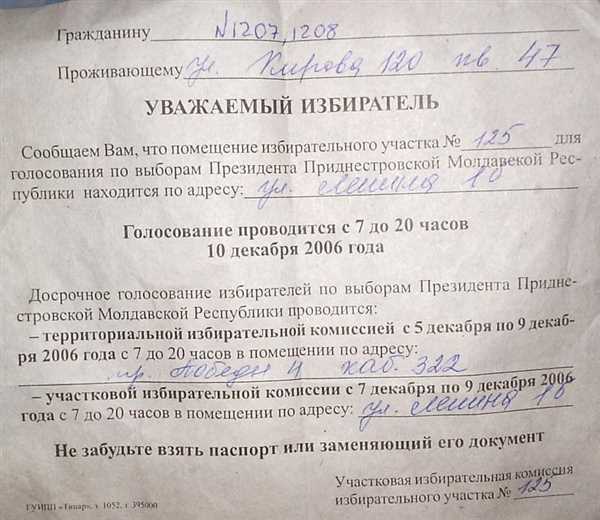 Гражданину N1207, 1208
Проживающему ул. Кирова 120 кв 47
УВАЖАЕМЫЙ ИЗБИРАТЕЛЬ
Сообщаем Вам, что помещение избирательного участка № 125 для
голосования по выборам Президента Приднестровской Молдавской Рес-
публики находится по адресу: ул. Ленина 10
Голосование проводится с 7 до 20 часов
10 декабря 2006 года
Досрочное голосование избирателей по выборам Президента Придне-
стровской Молдавской Республики проводится:
– территориальной избирательной комиссией с 5 декабря по 9 декаб-
ря 2006 года с 7 до 20 часов в помещении по адресу:
пр. Победы 4 каб. 322
– участковой избирательной комиссии с 7 декабря по 9 декабря 2006
года с 7 до 20 часов в помещении по адресу: ул. Ленина 10
Не забудьте взять паспорт или заменяющий его документ
Участковая избирательная комиссия
избирательного участка № 125
ГУИПП «Типар», з. 1052, т. 395000